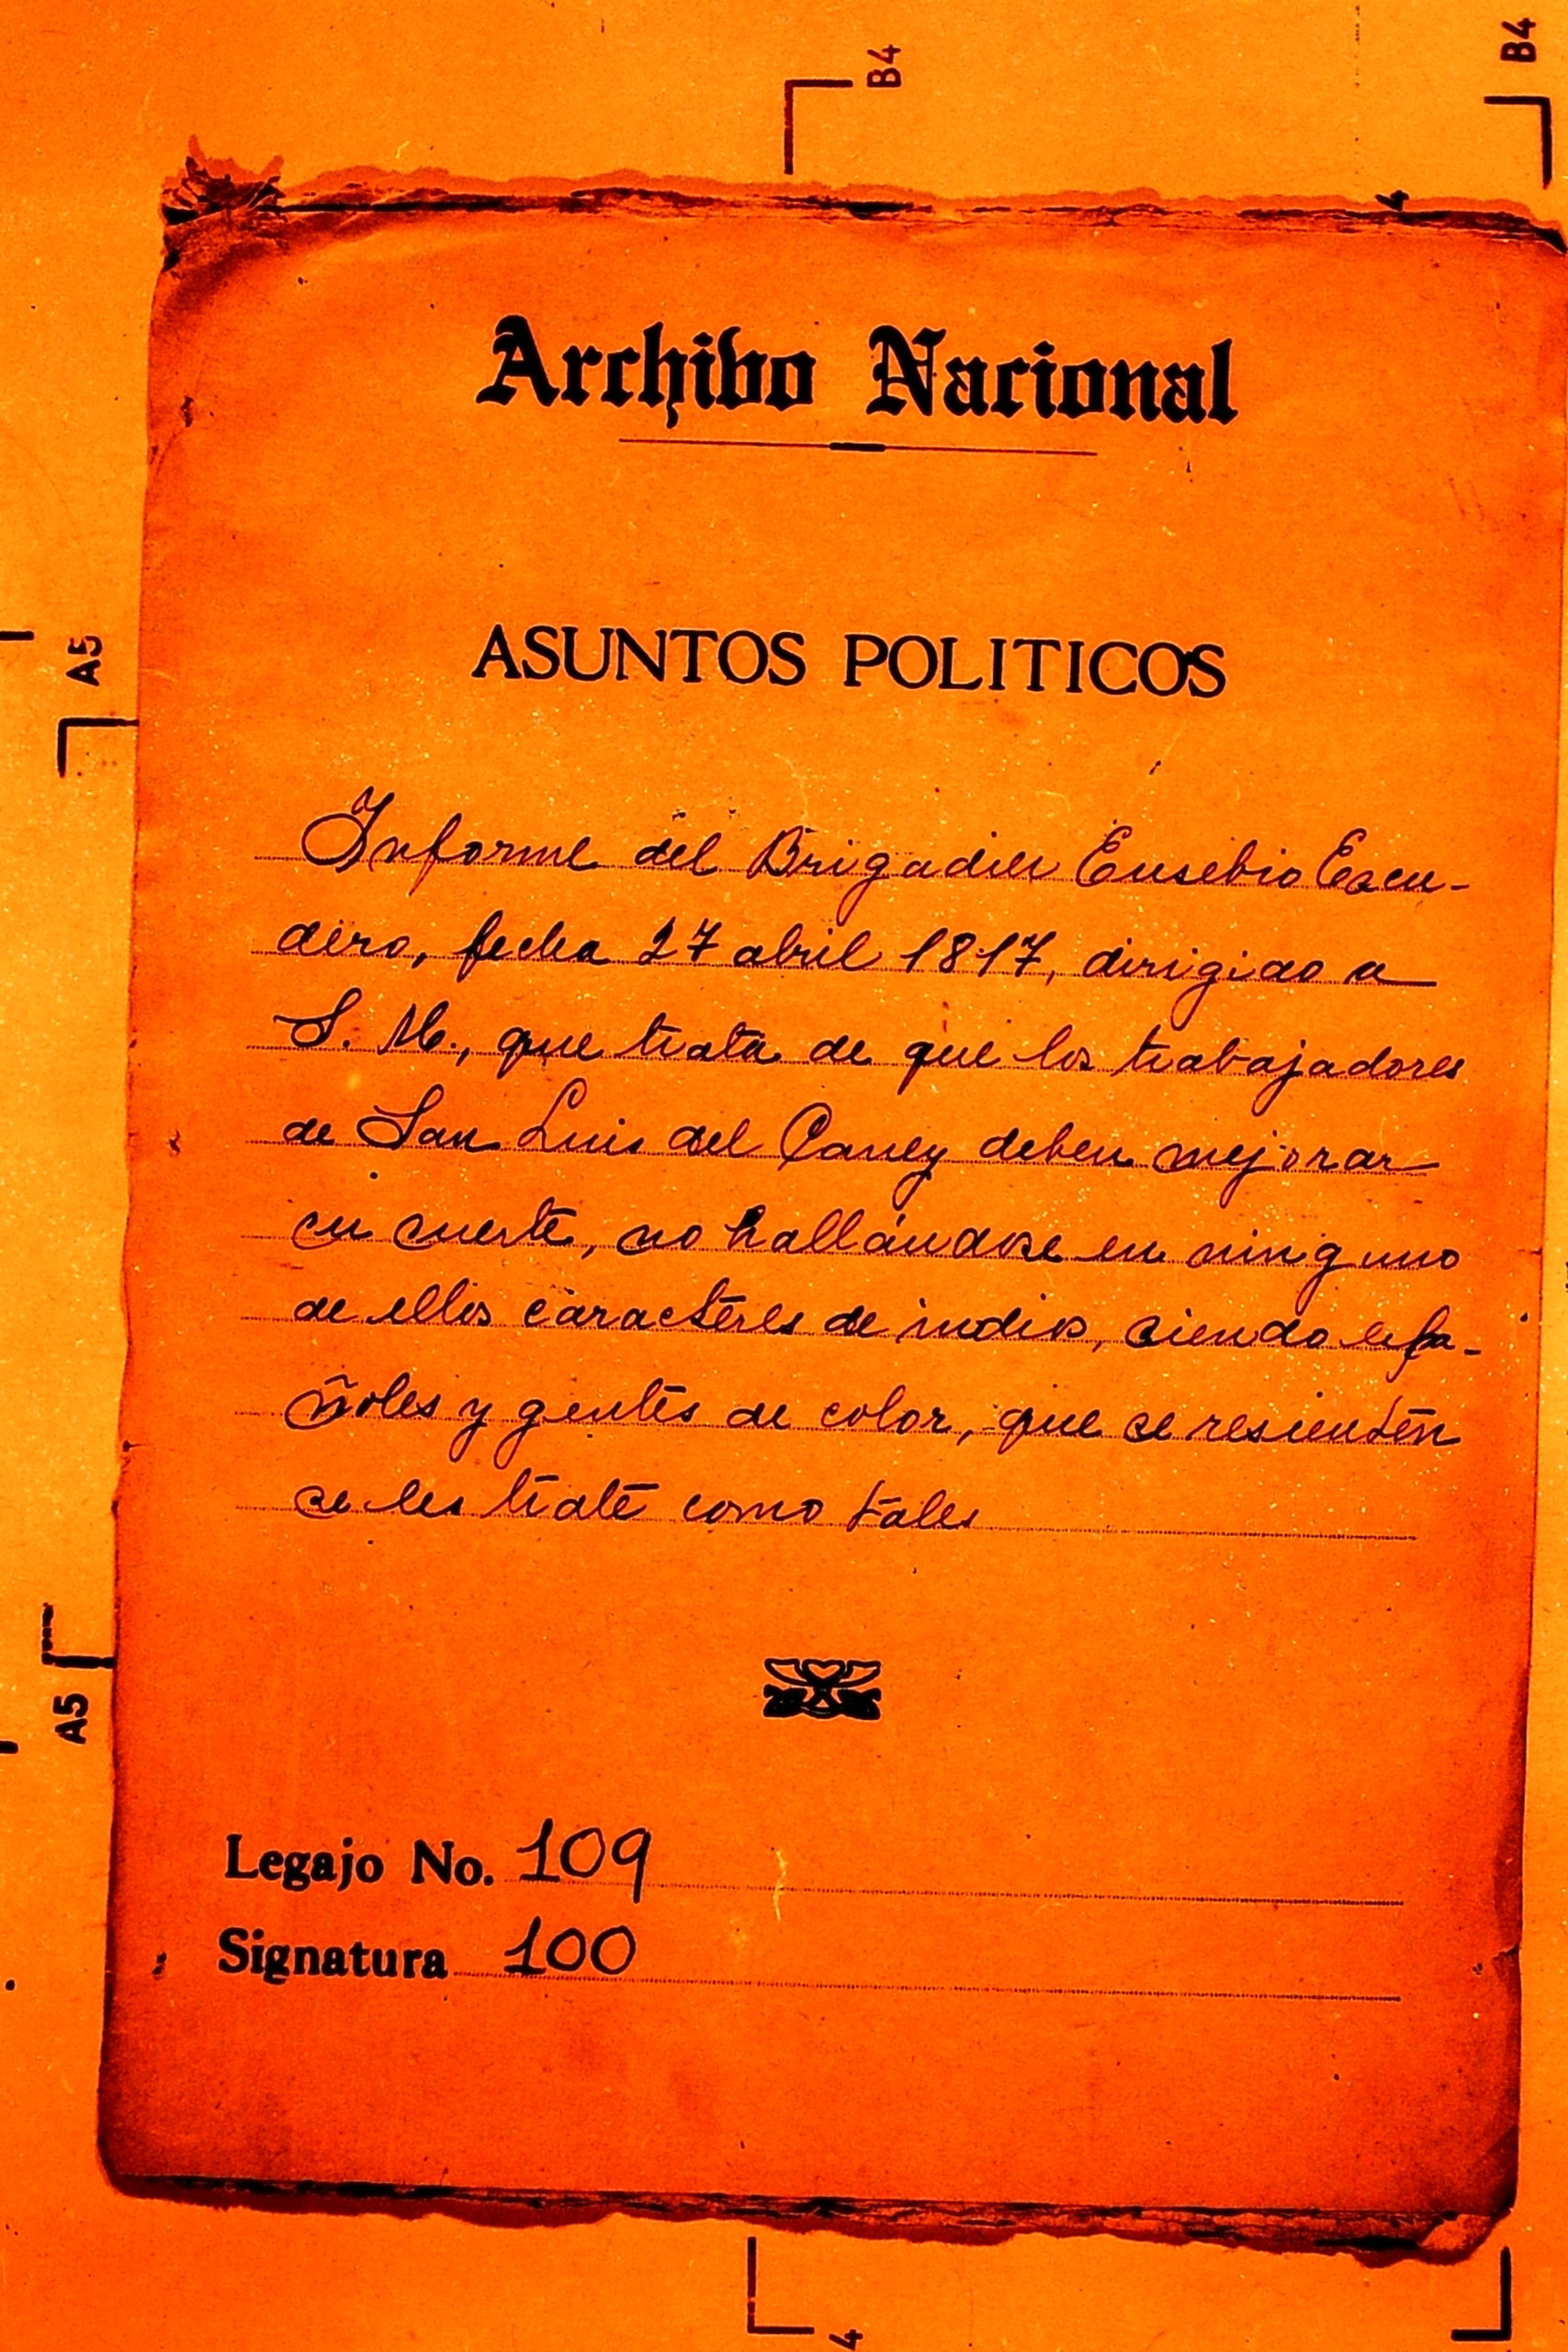 B4
B4
Archivo Nacional
ASUNTOS POLITICOS
A5
Informe del Brigadier Eusebio Escu-
dero, fecha 27 abril 1817, dirigido a
S. M., que trata de que los trabajadores
de San Luis del Caney deben mejorar
su suerte, no hallándose en ninguno
de ellos caracteres de indios, siendo espa-
ñoles y gentes de color, que se resienten
se les trate como tales
A5
Legajo No. 109
Signatura 100
4